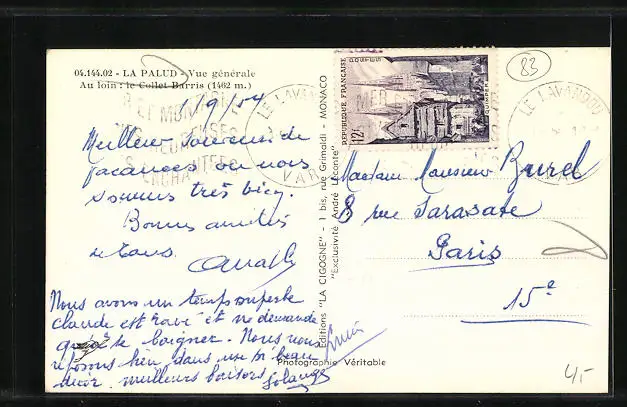 04.144.02 - LA PALUD - Vue générale
Au loin : le Collet Barris (1462 m.)
1/9/54
Meilleur souvenir de
vacances où nous
sommes très bien.
Bonnes amitiés
de tous.
Nous avons un temps superbe
claude est ravi et ne demande
qu'à se baigner. Nous nous
reposons bien dans un si beau
décor. meilleurs baisers Solange
Editions "LA CIGOGNE" - 1 bis, rue Grimaldi - MONACO
"Exclusivité André Leconte"
Photographie Véritable
REPUBLIQUE FRANÇAISE
POSTES
12F
QUIMPER
LE LAVANDOU
VAR
LE LAVANDOU
83
Madame Monsieur Burel
8 rue Sarasate
Paris
15e
4,-